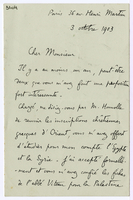 Paris 26 av. Henri Martin
3 octobre 1903
Cher Monsieur
Il y a au moins un an, peut être
deux que vous m'avez fait une proposition
fort intéressante.
Chargé, me disiez vous par M. Homolle
de réunir les inscriptions chrétiennes
grecques d'Orient vous m'avez offert
d'étudier pour mon compte l'Egypte
et la Syrie. J'ai accepté
et vous m'avez confié les fiches
à l'abbé pour la Palestine